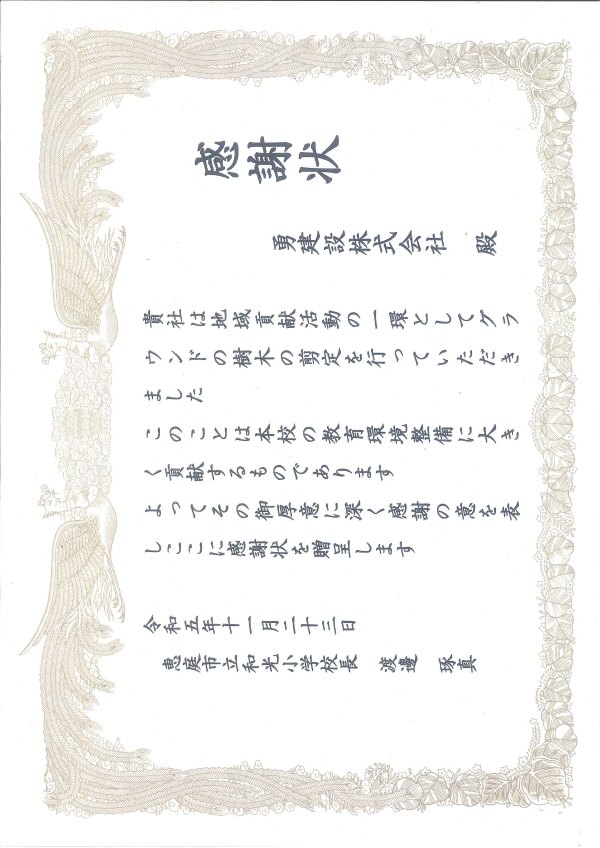 感謝状
勇建設株式会社 殿
貴社は地域貢献活動の一環としてグラ
ウンドの樹木の剪定を行っていただき
ました
このことは本校の教育環境整備に大き
く貢献するものであります
よってその御厚意に深く感謝の意を表
しここに感謝状を贈呈します
令和五年十一月二十三日
恵庭市立和光小学校長 渡邊 琢真